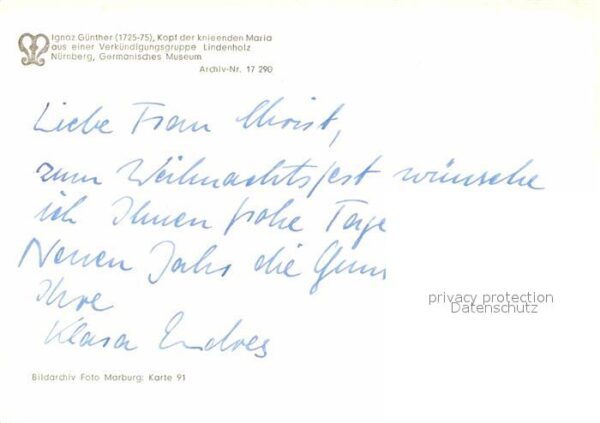 Ignaz Günther (1725-75), Kopf der knieenden Maria
aus einer Verkündigungsgruppe Lindenholz
Nürnberg, Germanisches Museum
Archiv-Nr. 17 290
Liebe Frau Christ,
zum Weihnachtsfest wünsche
ich Ihnen frohe Tage
Neuen Jahr die
Ihre
Klara Endres
privacy protection
Datenschutz
Bildarchiv Foto Marburg: Karte 91